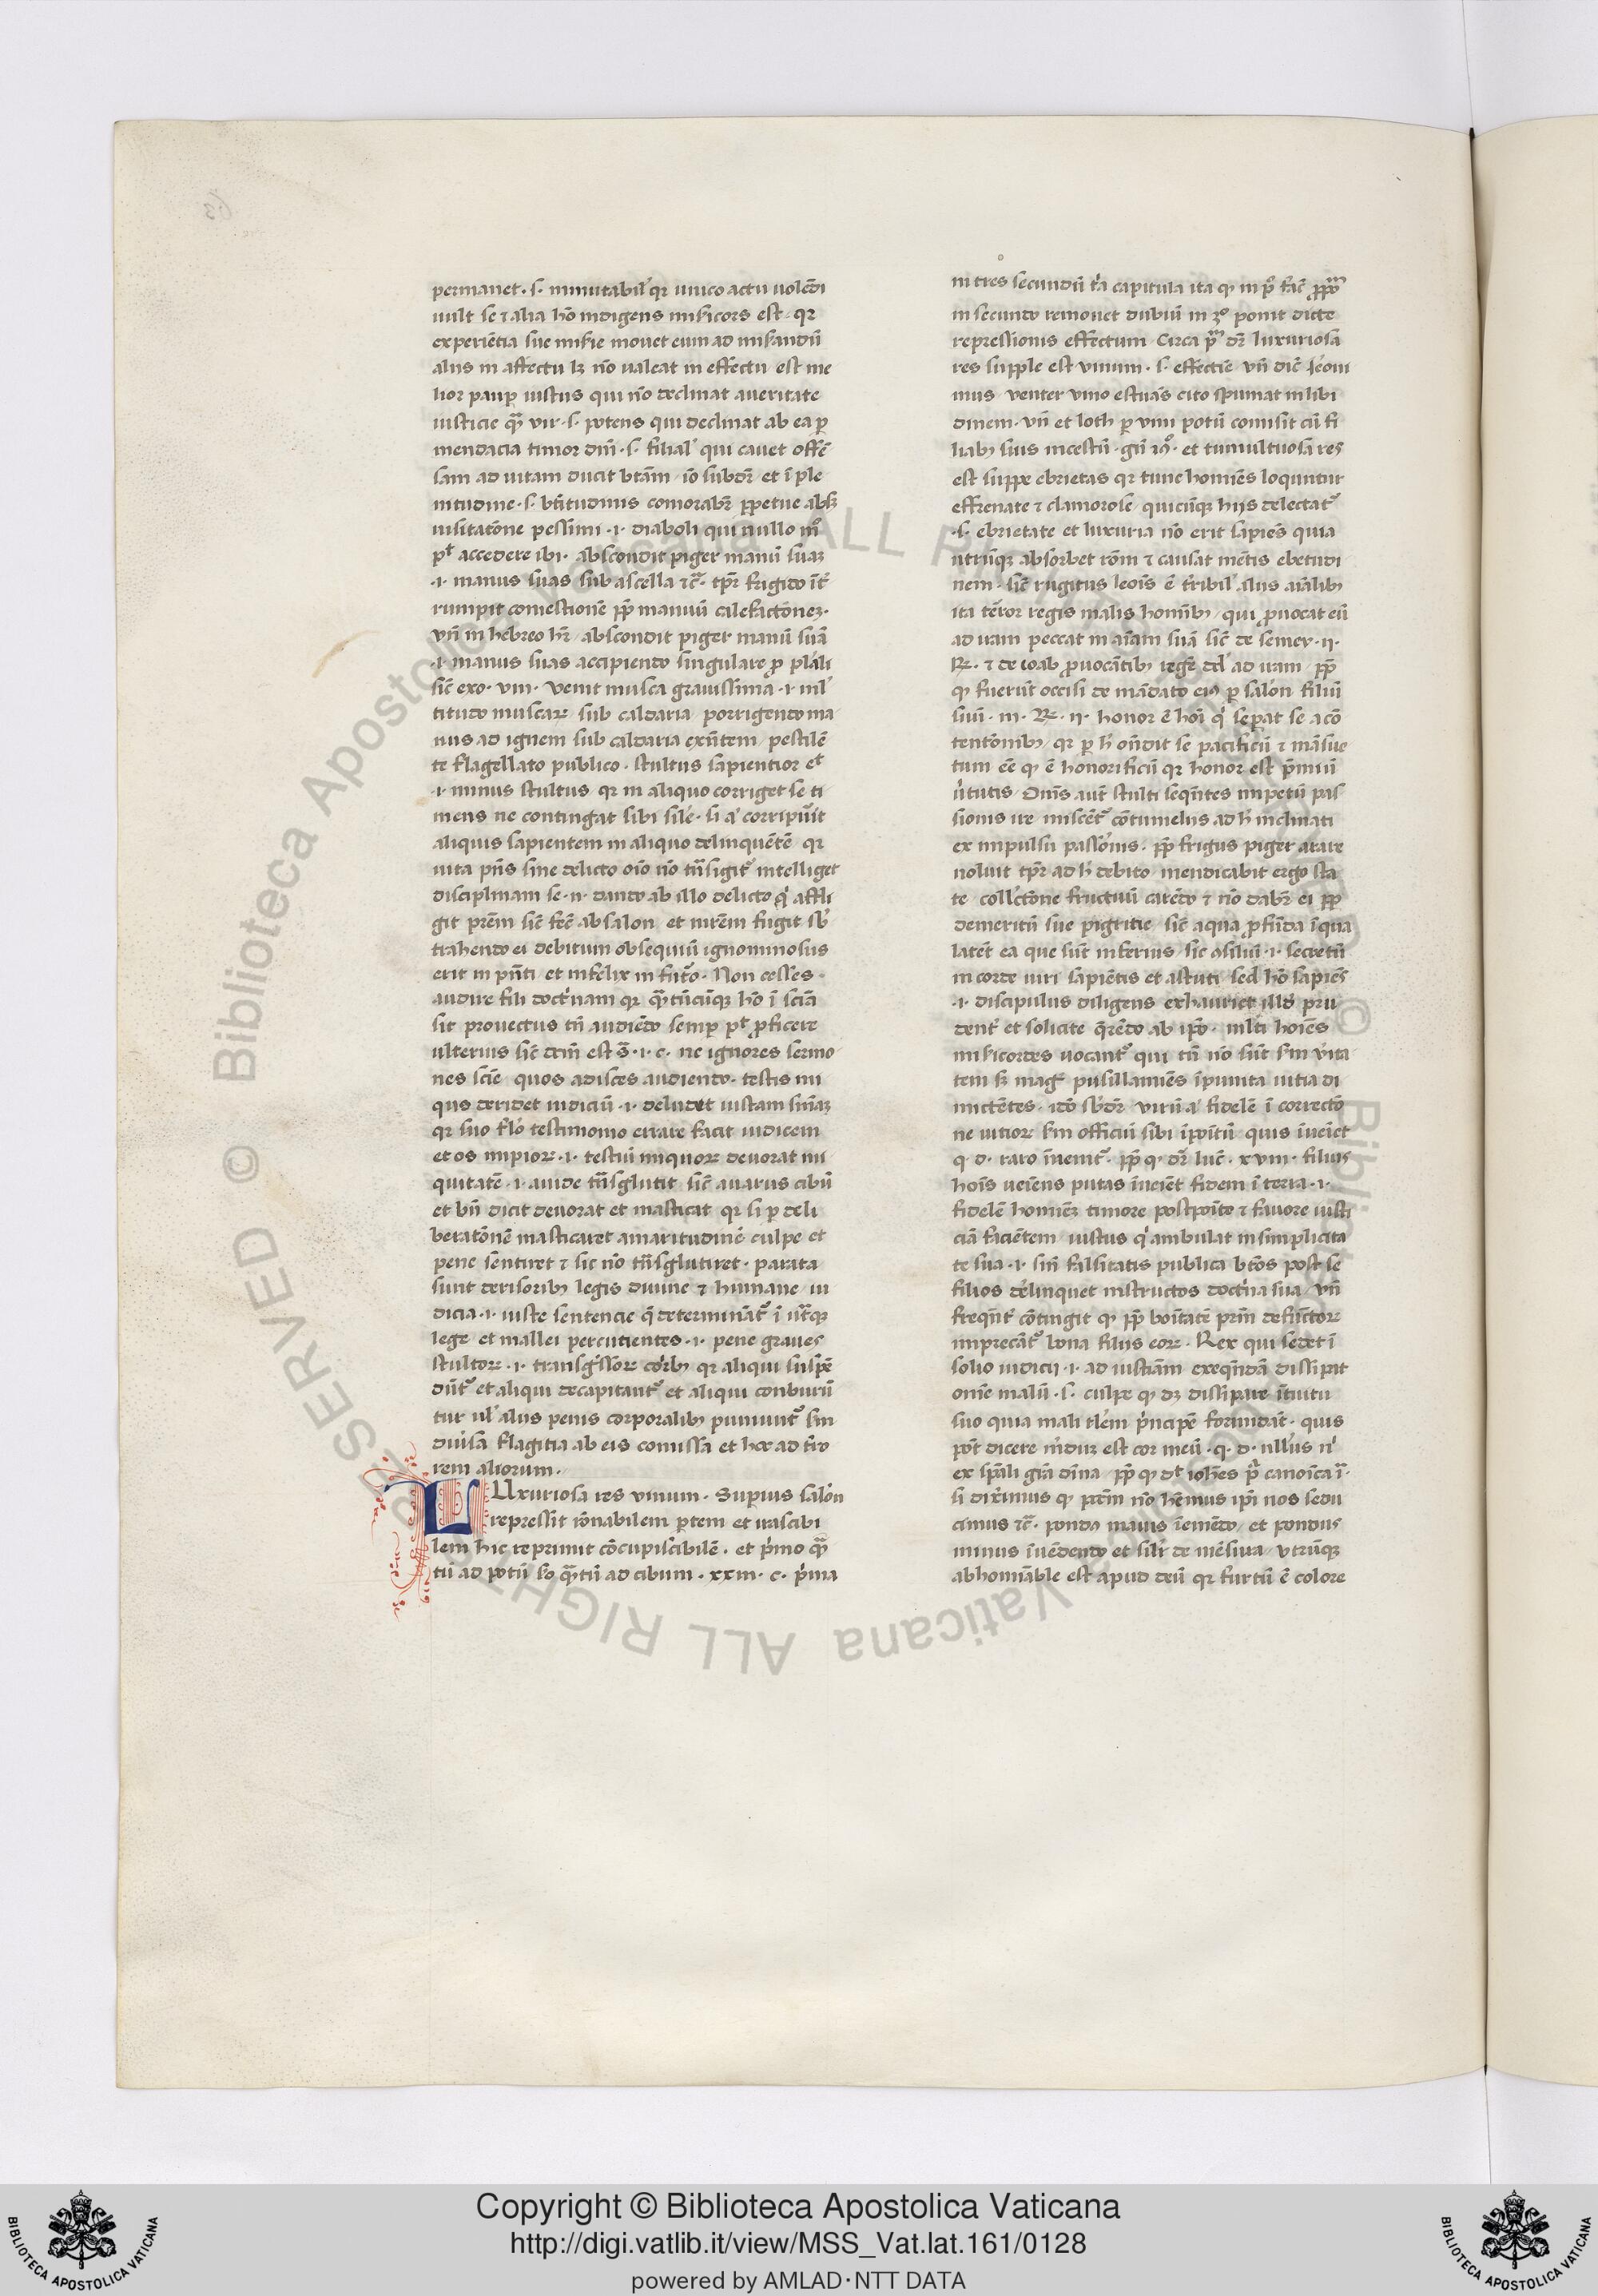 permanet. s. inmutabil' qr unico actu uolēdi
uult se ⁊ alia hō indigens misicors est. qr
experiētia sue misie mouet eum ad misandū
aliis in affectu lꝫ nō ualeat in effectu est me
lior paup iustus qui nō declinat a ueritate
iusticie q̄ vir. s. potens qui declinat ab ea p
mendacia timor dn̄i. s. filial' qui cauet offē
sam ad uitam ducit btām iō subdr̄ et ī ple
nitudine. s. btitudinis comorabr̄ ppetue absꝫ
uisitatōne pessimi .i. diaboli qui nullo mō
pt accedere ibi. abscondit piger manū suaꝫ
.i. manus suas sub ascella ⁊c̄. tpr frigido īt
rumpit comestionē pp manuū calefactōneꝫ.
vn̄ in hebreo hr̄ abscondit piger manū suā
.i. manus suas accipiendo singulare p plāli
sic̄ exo. viii. venit musca grauissima .i. ml'
titudo muscaꝝ sub caldaria porrigendo ma
nus ad ignem sub caldaria exn̄tem pestilē
te flagellato publico. stultus sapientior et
.i. minus stultus qr in aliquo corriget se ti
mens ne contingat sibi sile. si a' corripu̅it
aliquis sapientem in aliquo delinquētē qr
uita pn̄s sine delicto oīo nō tn̄sigit intelliget
disciplinam se .n. dando ab illo delicto q' affli
git prēm sic̄ fec̄ absalon et mrēm fugit sb
trahendo ei debitum obsequiū ignominosus
erit in pn̄ti et infelix in futō. Non cesses
audire fili doctnam qr q̄tūcūqꝫ hō ī sciā
sit prouectus tn̄ audiēdo semp pt pficere
ulterius sic̄ dcm̄ est s̄ .i. c. ne ignores sermo
nes scīe quos adisces audiendo. testis ini
qus deridet iudiciū .i. deludet iustam sn̄iaꝫ
qr suo flō testimonio errare facit iudicem
et os impioꝝ .i. testiū iniquoꝝ deuorat ini
quitatē .i. auide tn̄sglutit sic̄ auarus cibū
et bn̄ dicit deuorat et masticat qr si p deli
beratōnē masticaret amaritudinē culpe et
pene sentiret ⁊ sic nō tn̄sglutiret. parata
sunt derisoribꝫ legis diuine ⁊ humane iu
dicia .i. iuste sentencie q̄ determinat̄ ī utqꝫ
lege et mallei percutientes .i. pene graues
stultoꝝ .i. transgssoꝝ corbꝫ qr aliqui suspē
dūt̄ et aliqui decapitant̄ et aliqui conburū
tur ul' aliis penis corporalibꝫ puniunt̄ sm
diūsa flagitia ab eis comissa et hoc ad tro
rem aliorum.
LUxuriosa res vinum. Supius salōn
repressit rōnabilem ptem et irascibi
lem hic reprimit cōcupiscibilē. et pmo q̄
tū ad potū so q̄tū ad cibum. xxiii. c. pma
in tres secundū tā capitula ita qꝫ in pº fac̄ ppōm
in secundo remouet dubiū in 3º ponit dicte
repressionis effectum. Circa pm dr̄ luxuriosa
res supple est vinum. s. effectiē vn̄ dic̄ Jeroni
mus venter uino estuās cito spumat in libi
dinem. vn̄ et loth p vini potū comisit cū fi
liabꝫ suis incestū. gn̄ 19º. et tumultuosa res
est suppe ebrietas qr tunc homīes loquntur
effrenate ⁊ clamorose quicūqꝫ hijs delectat̄
.s. ebrietate et luxuria nō erit sapiēs quia
utrūqꝫ absorbet rōm ⁊ causat mētis ebetudi
nem. sic̄ rugitus leōis ē tribil' aliis aīalibꝫ
ita tēror regis malis homībꝫ qui puocat eū
ad iram peccat in aīam suā sic̄ de semey .ij.
R̄. ⁊ de ioab puocātibꝫ regē del' ad iram pp
qꝫ fuerūt occisi de mādato eiꝰ p salōn filiū
suū. iii. R̄. ij. honor ē hoī q' sepat se a cō
tentōnibꝫ qr p h̄ on̄dit se pacificū ⁊ māsue
tum eē qꝫ ē honorificū qr honor est pmiū
ūtutis Omīs aut̄ stulti seqn̄tes impetū pas
sionis ire miscēt̄ cōtumeliis ad h̄ inclinati
ex impulsu passiōnis. pp frigus piger arare
noluit tpr ad h̄ debito mendicabit ergo sta
te collctōne fructuū carēdo ⁊ nō dabr̄ ei pp
demeritū sue pigritie sic̄ aqua pfūda ī qua
latēt ea que sūt inferius sic ɔsiliū .i. secretū
in corde uiri sapiētis et astuti sed hō sapiēs
.i. discipulus diligens exhauriet illd' pru
dent' et solicite qrēdo ab ipō. mlti hoīes
misicordes uocant̄ qui tn̄ nō sūt sm ūita
tem sꝫ mag' pusillanimēs īpunita uitia di
mictētes. ido sbdr̄ virū a' fidelē ī correctō
ne uitioꝝ sm officiū sibi īpositū quis īueīet
q. d. raro īuenit̄. pp qꝫ dr̄ luc̄. xviii. filius
hoīs ueīens putas īueīēt fidem ī terra .i.
fidelē homīeꝫ timore postpōito ⁊ fauore iusti
ciā faciētem iustus q' ambulat in simplicita
te sua .i. sin̄ falsitatis publica btōs post se
filios delinquet instructos doctina sua vn̄
freqn̄t̄ cōtingit qꝫ pp boītatē prim̄ defūctoꝝ
imprecāt̄ bona filiis eoꝝ. Rex qui sedet ī
solio iudicij .i. ad iustiām exeqn̄dā dissipat
omē malū .s. culpe qꝫ dꝫ dissipare ītuitu
suo quia mali tlem pncipē formidāt. quis
pōt dicere mūduꝫ est cor meū .q. d. ullus n'
ex spāli gīa dīna pp qꝫ dt ioħes pª canōica ī.
si dixīmus qꝫ pctm̄ nō hemus ipī nos sedu
cimus ⁊c̄. pondꝰ maius īemēdo et pondus
minus īuēdendo et silr de mēsura vtrūqꝫ
abhomīable est apud deū qr furtū ē colore
Copyright © Biblioteca Apostolica Vaticana
http://digi.vatlib.it/view/MSS_Vat.lat.161/0128
powered by AMLAD·NTT DATA
BIBLIOTECA APOSTOLICA VATICANA
BIBLIOTECA APOSTOLICA VATICANA
© Biblioteca Apostolica Vaticana ALL RIGHTS RESERVED
© Biblioteca Apostolica Vaticana ALL RIGHTS RESERVED